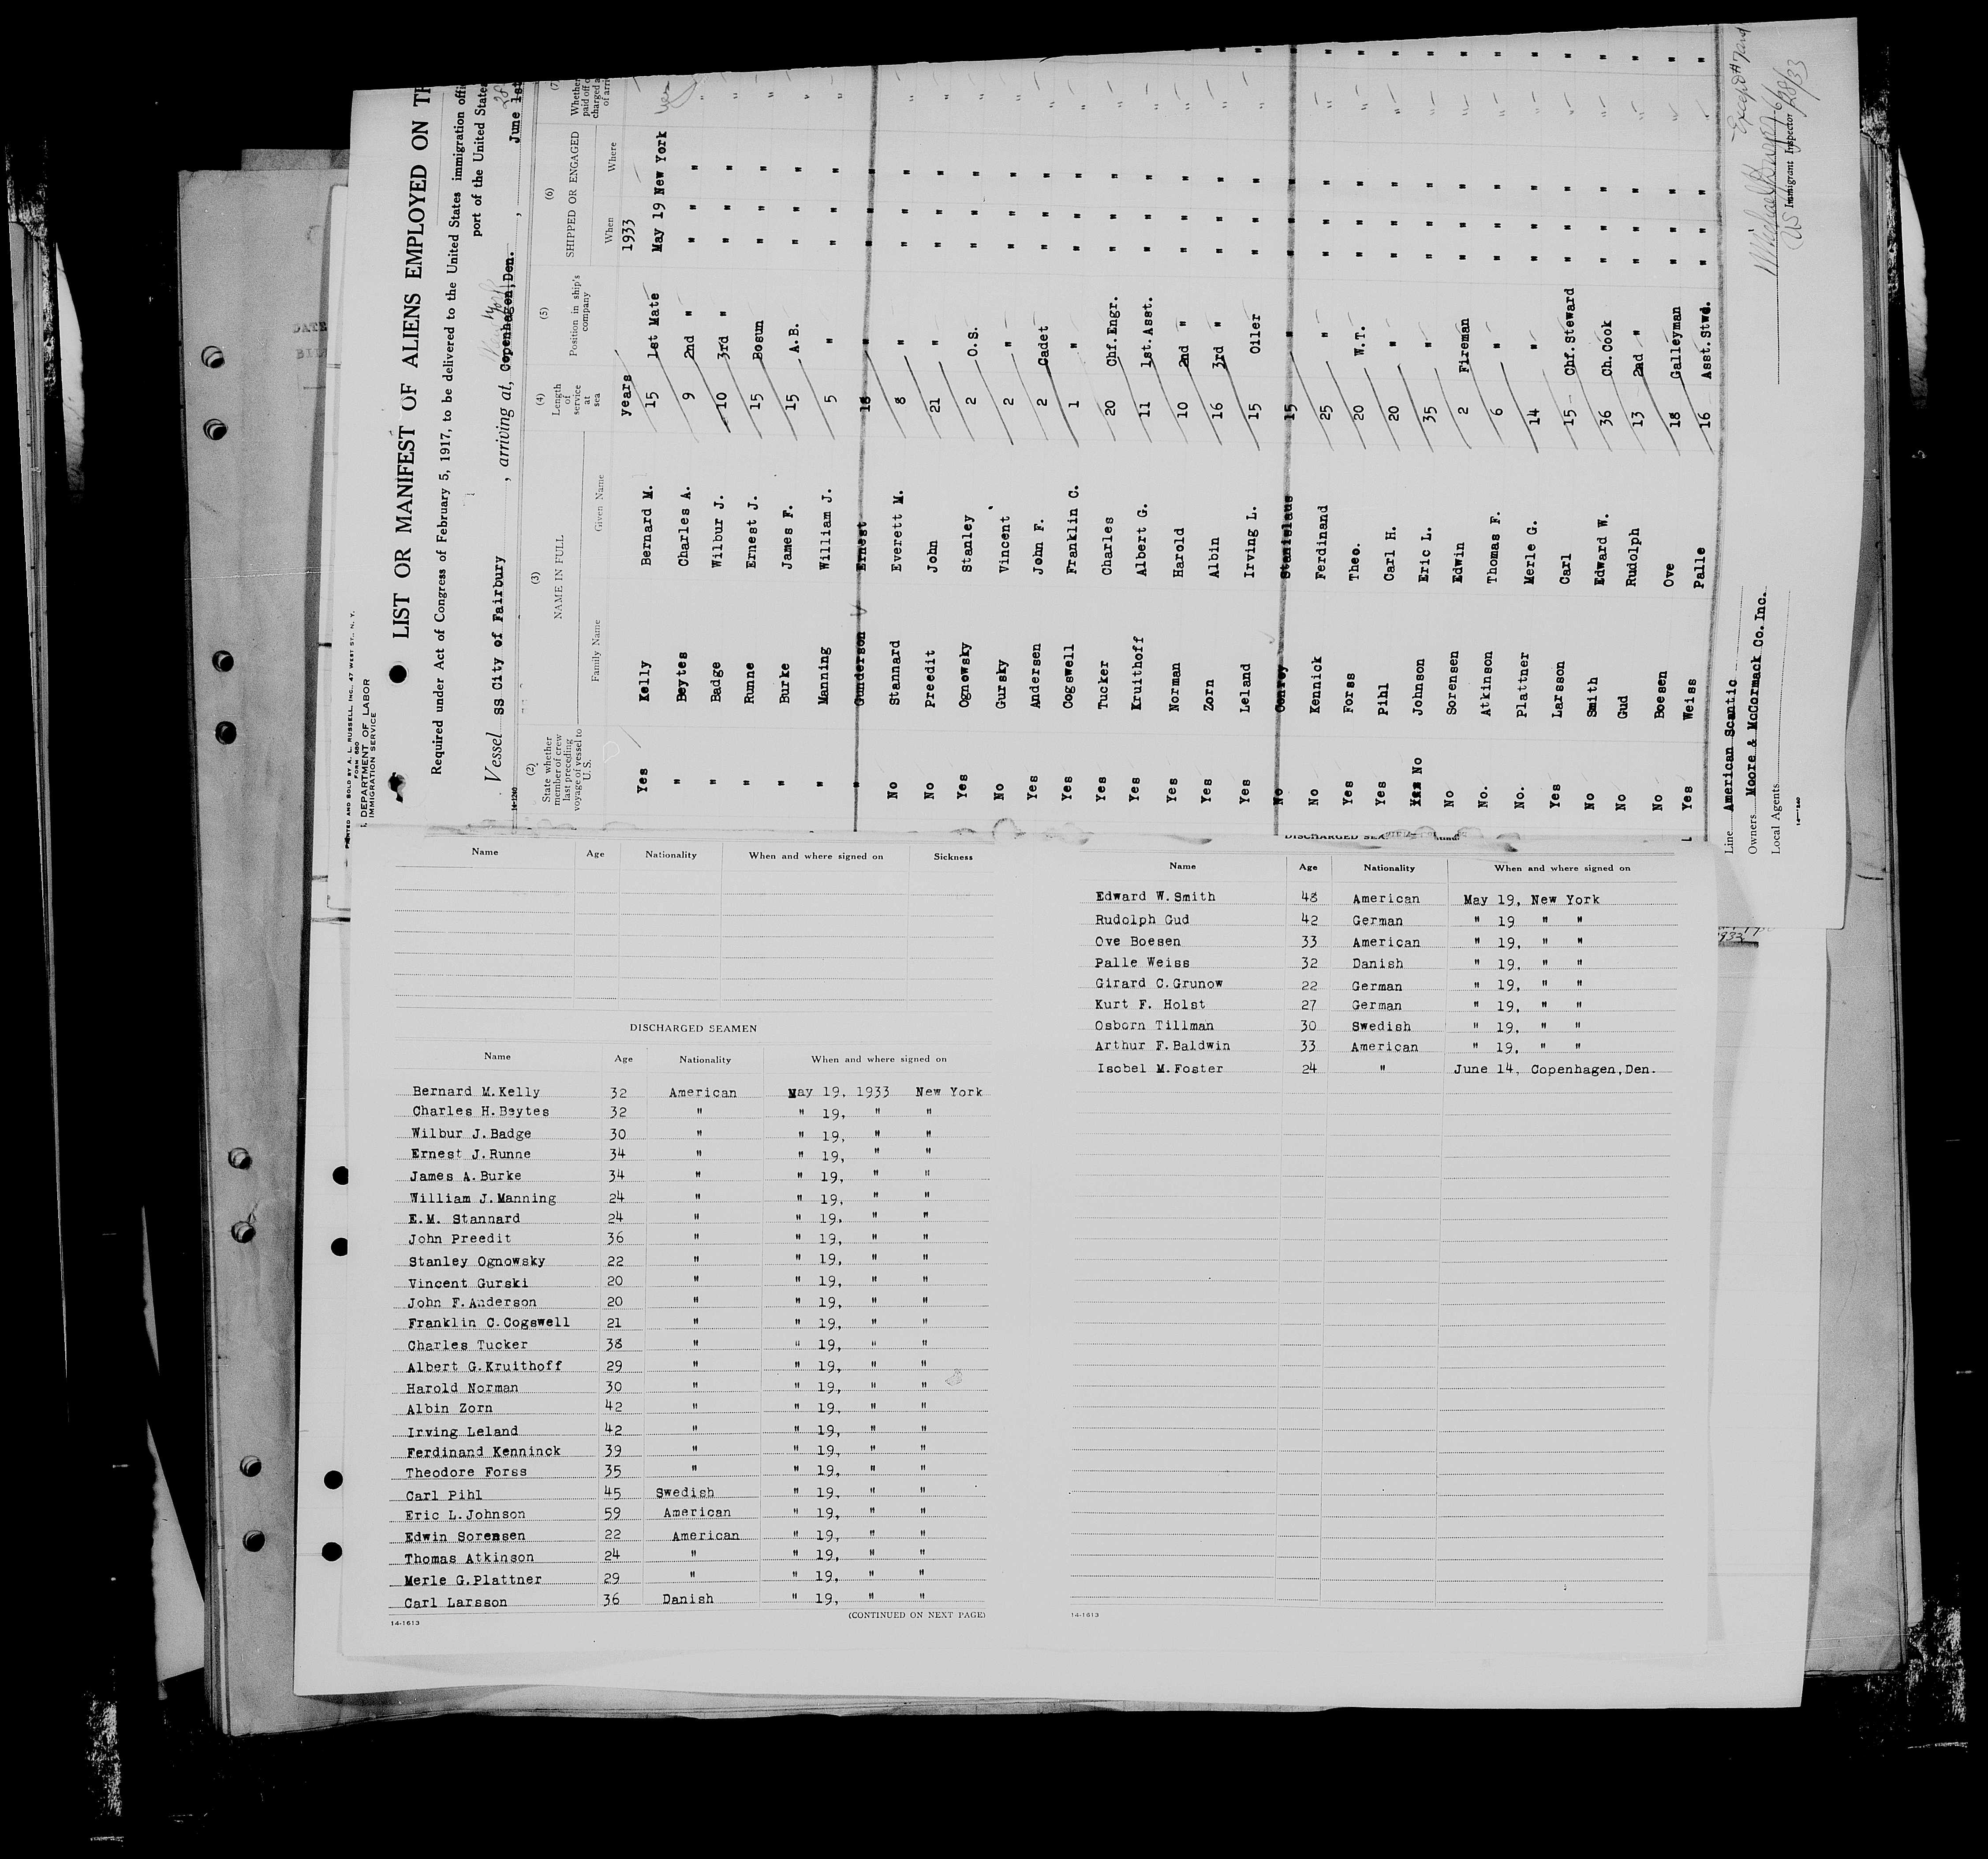 DATE
PRINTED AND SOLD BY A. L. RUSSELL, INC., 47 WEST ST., N. Y.
FORM 680
DEPARTMENT OF LABOR
IMMIGRATION SERVICE
LIST OR MANIFEST OF ALIENS EMPLOYED ON
Required under Act of Congress of February 5, 1917, to be delivered to the United States immigration
port of the United States
Vessel SS City of Fairbury, arriving at, Copenhagen, Den. New York, June 1st 28
14-1240
(2) State whether member of crew last preceding voyage of vessel to U.S. (3) NAME IN FULL (4) Length of service at sea (5) Position in ship's company (6) SHIPPED OR ENGAGED (7) Whether
Family Name Given Name When Where
years 1933
Yes Kelly Bernard M. 15 1st Mate May 19 New York yes
" Beytes Charles A. 9 2nd " " " "
" Badge Wilbur J. 10 3rd " " " "
" Runne Ernest J. 15 Bosun " " "
" Burke James F. 15 A.B. " " "
" Manning William J. 5 " " " "
" Gunderson Ernest 18 " " " "
No Stannard Everett M. 8 " " " "
No Preedit John 21 " " " "
Yes Ognowsky Stanley 2 O.S. " " "
No Gursky Vincent 2 " " " "
Yes Andersen John F. 2 Cadet " " "
Yes Cogswell Franklin C. 1 " " " "
Yes Tucker Charles 20 Chf.Engr. " " "
Yes Kruithoff Albert G. 11 1st.Asst. " " "
Yes Norman Harold 10 2nd " " " "
Yes Zorn Albin 16 3rd " " " "
Yes Leland Irving L. 15 Oiler " " "
No Stanislaus 15 " " " "
No Kennick Ferdinand 25 " " " "
Yes Forss Theo. 20 W.T. " " "
Yes Pihl Carl H. 20 " " " "
Yes No Johnson Eric L. 35 " " " "
No Sorensen Edwin 2 Fireman " " "
No. Atkinson Thomas F. 6 " " " "
No. Plattner Merle G. 14 " " " "
Yes Larsson Carl 15 Chf.Steward " " "
No Smith Edward W. 36 Ch.Cook " " "
No Gud Rudolph 13 2nd " " " "
No Boesen Ove 18 Galleyman " " "
Yes Weiss Palle 16 Asst.Stwd. " " "
Line American Scantic
Owners Moore & McCormack Co.Inc.
Local Agents
Immigrant Inspector
6/28/33
Name Age Nationality When and where signed on Sickness
DISCHARGED SEAMEN
Name Age Nationality When and where signed on
Bernard M.Kelly 32 American May 19, 1933 New York
Charles H.Beytes 32 " " 19, " "
Wilbur J.Badge 30 " " 19, " "
Ernest J.Runne 34 " " 19, " "
James A.Burke 34 " " 19, " "
William J.Manning 24 " " 19, " "
E.M. Stannard 24 " " 19, " "
John Preedit 36 " " 19, " "
Stanley Ognowsky 22 " " 19, " "
Vincent Gurski 20 " " 19, " "
John F.Anderson 20 " " 19, " "
Franklin C.Cogswell 21 " " 19, " "
Charles Tucker 38 " " 19, " "
Albert G.Kruithoff 29 " " 19, " "
Harold Norman 30 " " 19, " "
Albin Zorn 42 " " 19, " "
Irving Leland 42 " " 19, " "
Ferdinand Kenninck 39 " " 19, " "
Theodore Forss 35 " " 19, " "
Carl Pihl 45 Swedish " 19, " "
Eric L.Johnson 59 American " 19, " "
Edwin Sorensen 22 American " 19, " "
Thomas Atkinson 24 " " 19, " "
Merle G.Plattner 29 " " 19, " "
Carl Larsson 36 Danish " 19, " "
(CONTINUED ON NEXT PAGE)
14-1613
Name Age Nationality When and where signed on
Edward W.Smith 48 American May 19, New York
Rudolph Gud 42 German " 19 " "
Ove Boesen 33 American " 19, " "
Palle Weiss 32 Danish " 19, " "
Girard C.Grunow 22 German " 19, " "
Kurt F. Holst 27 German " 19, " "
Osborn Tillman 30 Swedish " 19, " "
Arthur F.Baldwin 33 American " 19, " "
Isobel M.Foster 24 " June 14, Copenhagen,Den.
14-1613